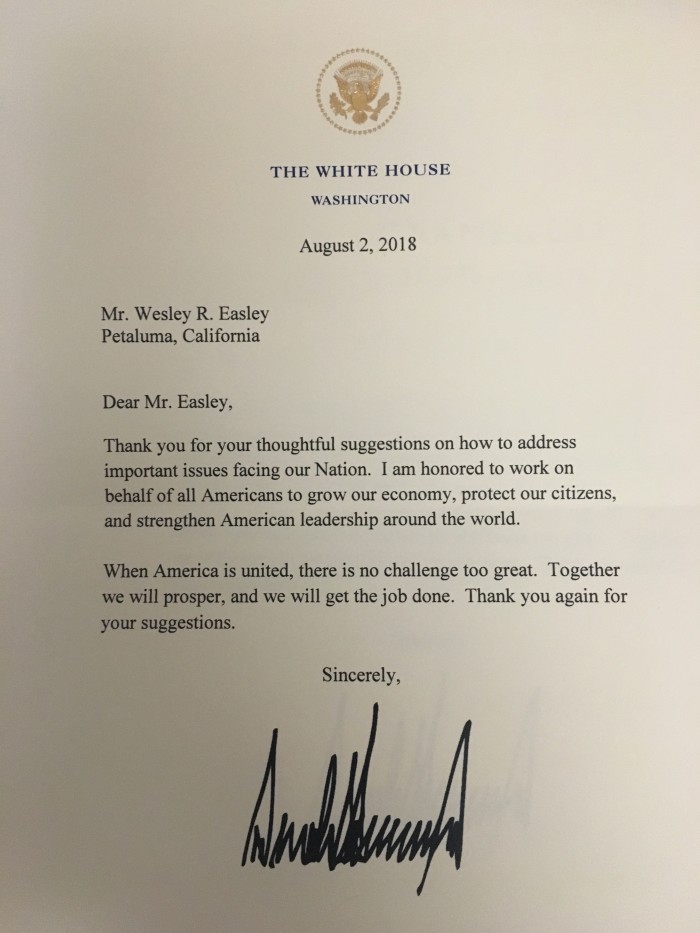 THE WHITE HOUSE
WASHINGTON
August 2, 2018
Mr. Wesley R. Easley
Petaluma, California
Dear Mr. Easley,
Thank you for your thoughtful suggestions on how to address
important issues facing our Nation.  I am honored to work on
behalf of all Americans to grow our economy, protect our citizens,
and strengthen American leadership around the world.
When America is united, there is no challenge too great.  Together
we will prosper, and we will get the job done.  Thank you again for
your suggestions.
Sincerely,